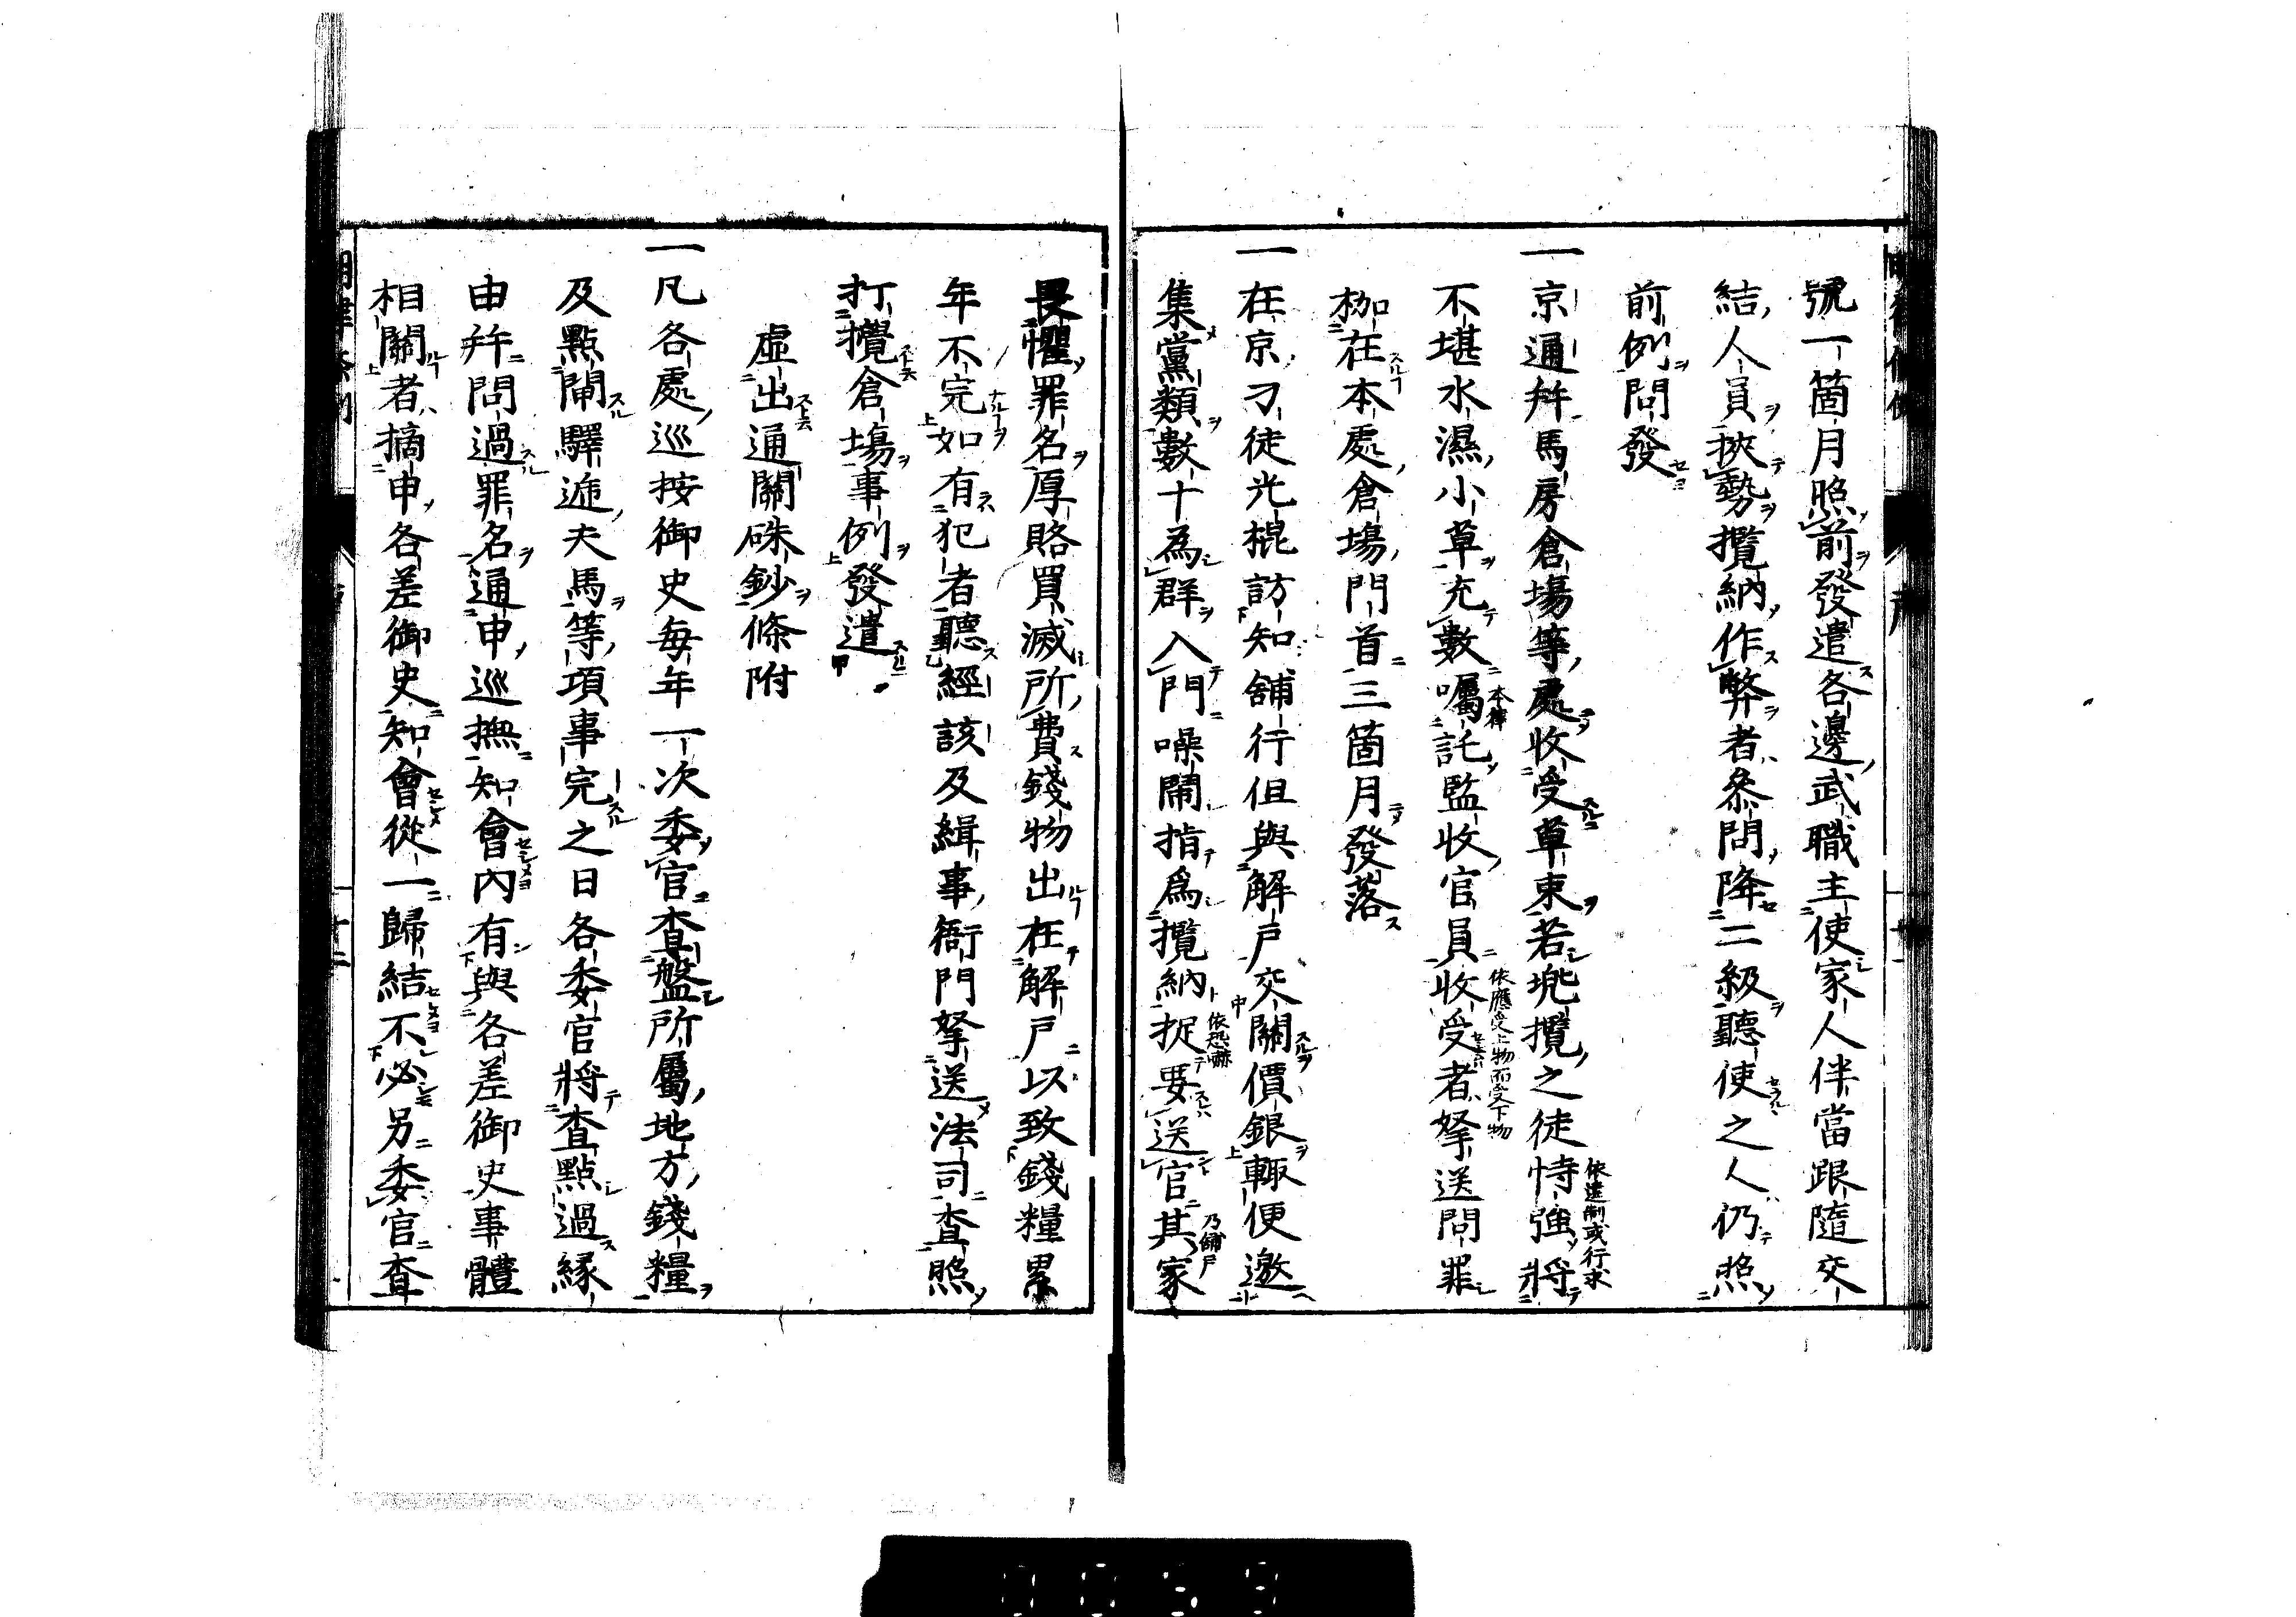 號一箇月照前發遣各邊武職主使家人伴當跟隨交
結人員挾勢攬納作弊者叅問降二級聽使之人仍照
前例問發
一京通幷馬房倉場等處收受草束若兠攬之徒恃強將
依違制或行求
不堪水濕小草充數囑託監收官員收受者拏送問罪
本律
依應受上物而受下物
枷在本處倉場門首三箇月發落
一在京刁徒光棍訪知舖行但與解戶交關價銀輙便邀
集黨類數十為群入門噪鬧指爲攬納捉要送官其家
依恐嚇
乃舖戶
畏懼罪名厚賂買滅所費錢物出在解戶以致錢糧累
年不完如有犯者聽經該及緝事衙門拏送法司查照
打攪倉場事例發遣
虛出通關硃鈔條附
一凡各處巡按御史每年一次委官查盤所屬地方錢糧
及點閘驛逓夫馬等項事完之日各委官將查點過緣
由幷問過罪名通申巡撫知會內有與各差御史事體
相關者摘申各差御史知會從一歸結不必另委官查